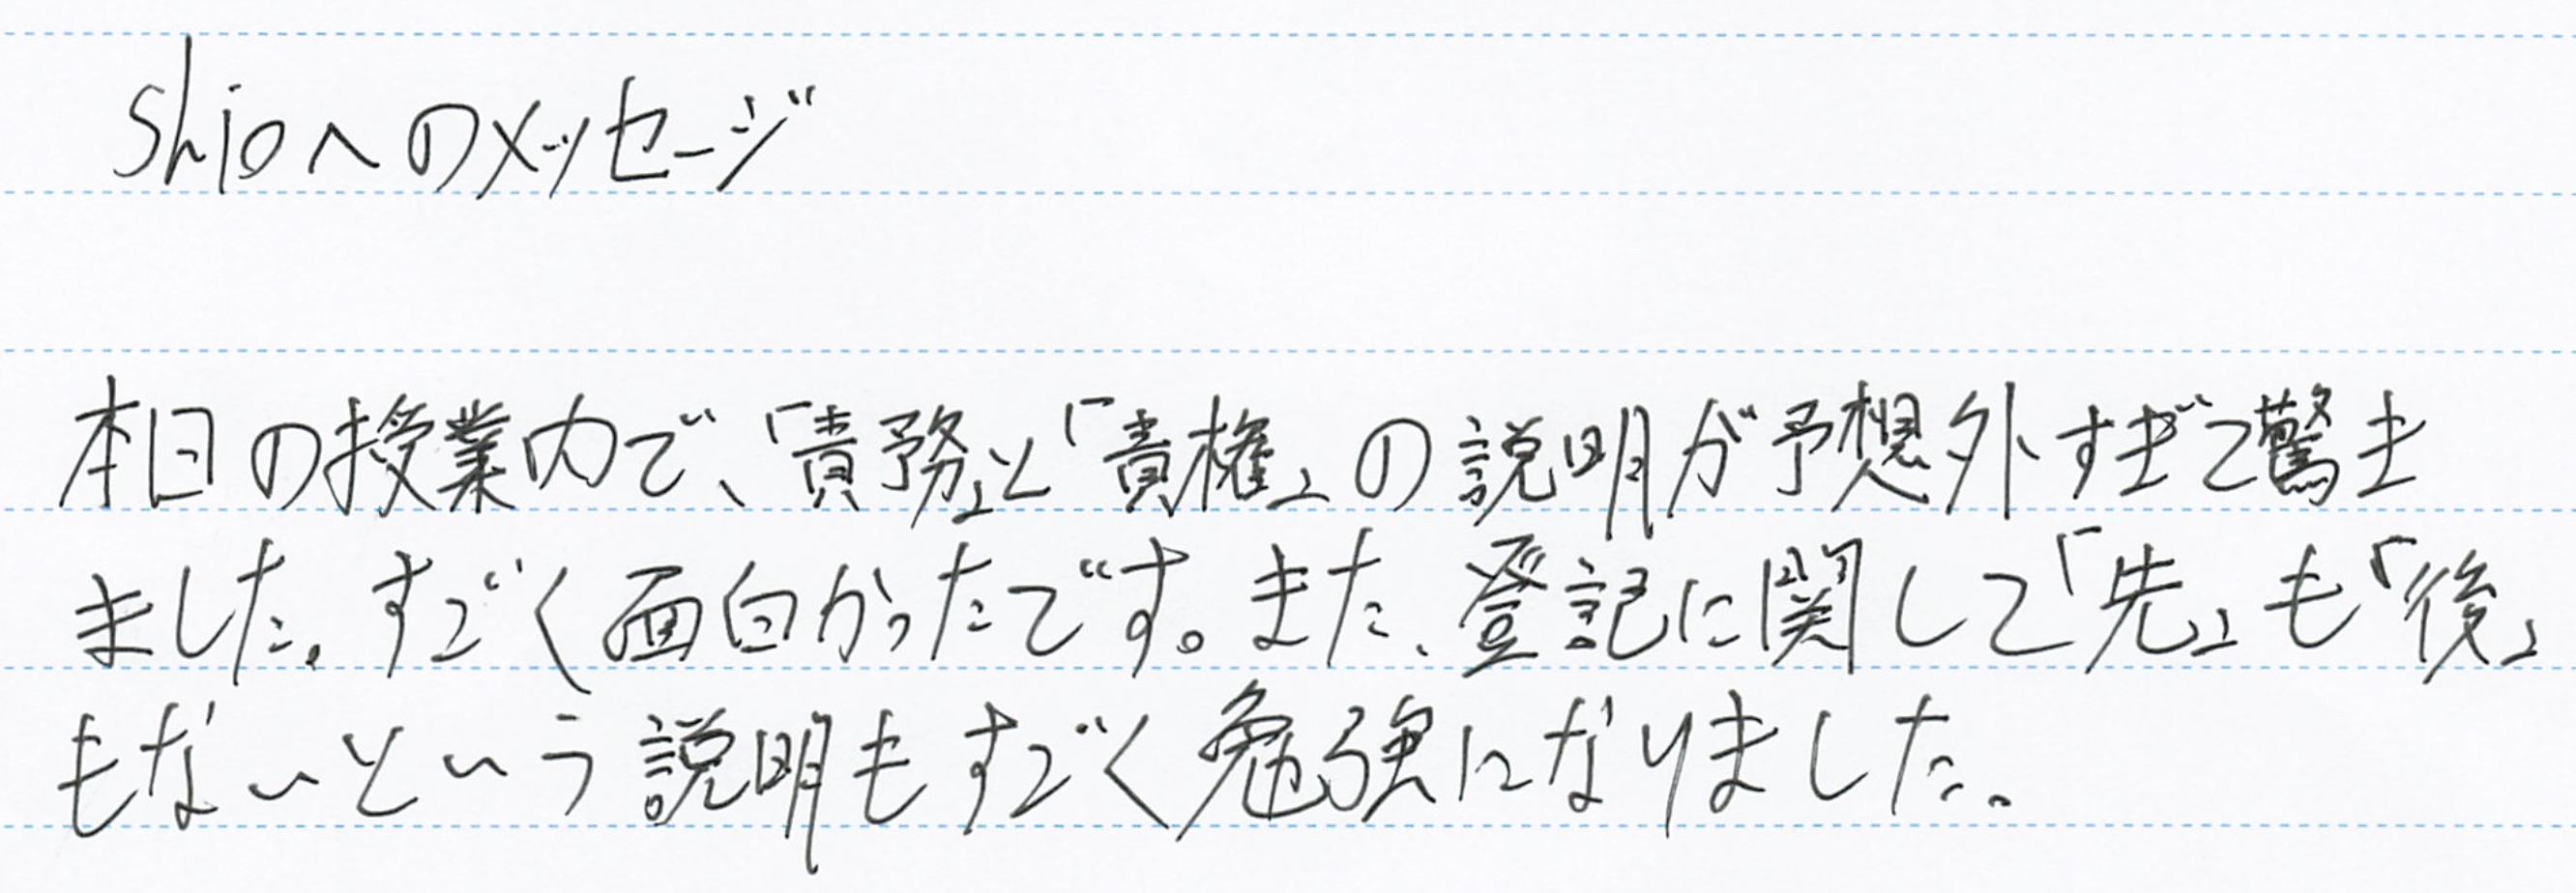 shioへのメッセージ
本日の授業内で、「責務」と「責権」の説明が予想外すぎて驚き
ました。すごく面白かったです。また、登記に関して「先」も「後」
もないという説明もすごく勉強になりました。